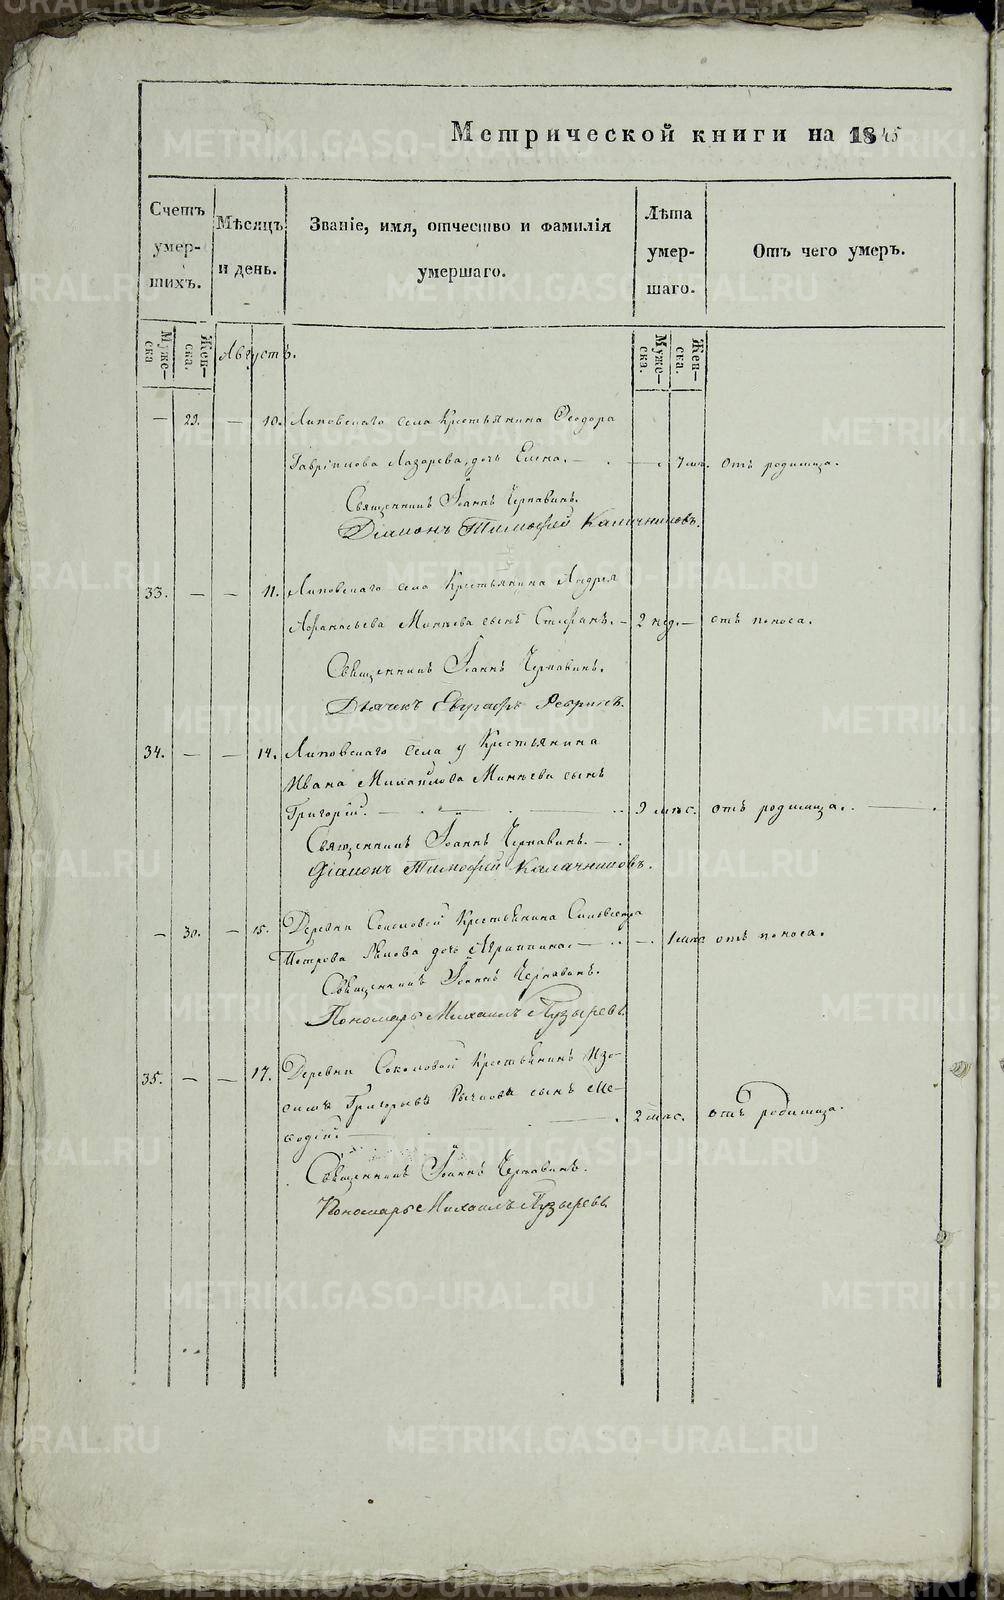 Метрической книги на 1845
Счетъ умер- шихъ.
Мѣсяцъ и день.
Званіе, имя, отчество и фамилія умершаго.
Лѣта умер- шаго.
Отъ чего умеръ.
Муже- ска
Жен- ска.
Августъ.
Муже- ска.
Жен- ска.
— 29. — 10. Липовскаго села Крестьянина Ѳеодора
Гавріилова Лазарева, дочь Елена. — 7 мѣс. Отъ родимца.
Священникъ Іоаннъ Чернавинъ.
Діаконъ Тимофей Калачниковъ.
33. — — 11. Липовскаго села Крестьянина Андрея
Афанасьева Минѣева сынъ Стефанъ. — 2 нед. — отъ поноса.
Священникъ Іоаннъ Чернавинъ.
Дьячекъ Евграфъ
34. — — 14. Липовскаго села у Крестьянина
Ивана Михайлова Минѣева сынъ
Григорій. — 9 мѣс. отъ родимца.
Священникъ Іоаннъ Чернавинъ. —
Діаконъ Тимофей Калачниковъ.
— 30. — 15. Деревни Соколовой Крестьянина Сильвестра
Петрова дочь Агриппина. — 1 мѣс. отъ поноса.
Священникъ Іоаннъ Чернавинъ.
Пономарь Михаилъ Пузыревъ
35. — — 17. Деревни Соколовой Крестьянинъ Изо-
сима Григорьевъ Рычкова сынъ Ме-
ѳодій. — 2 мѣс. отъ родимца.
Священникъ Іоаннъ Чернавинъ.
Пономарь Михаилъ Пузыревъ
METRIKI.GASO-URAL.RU